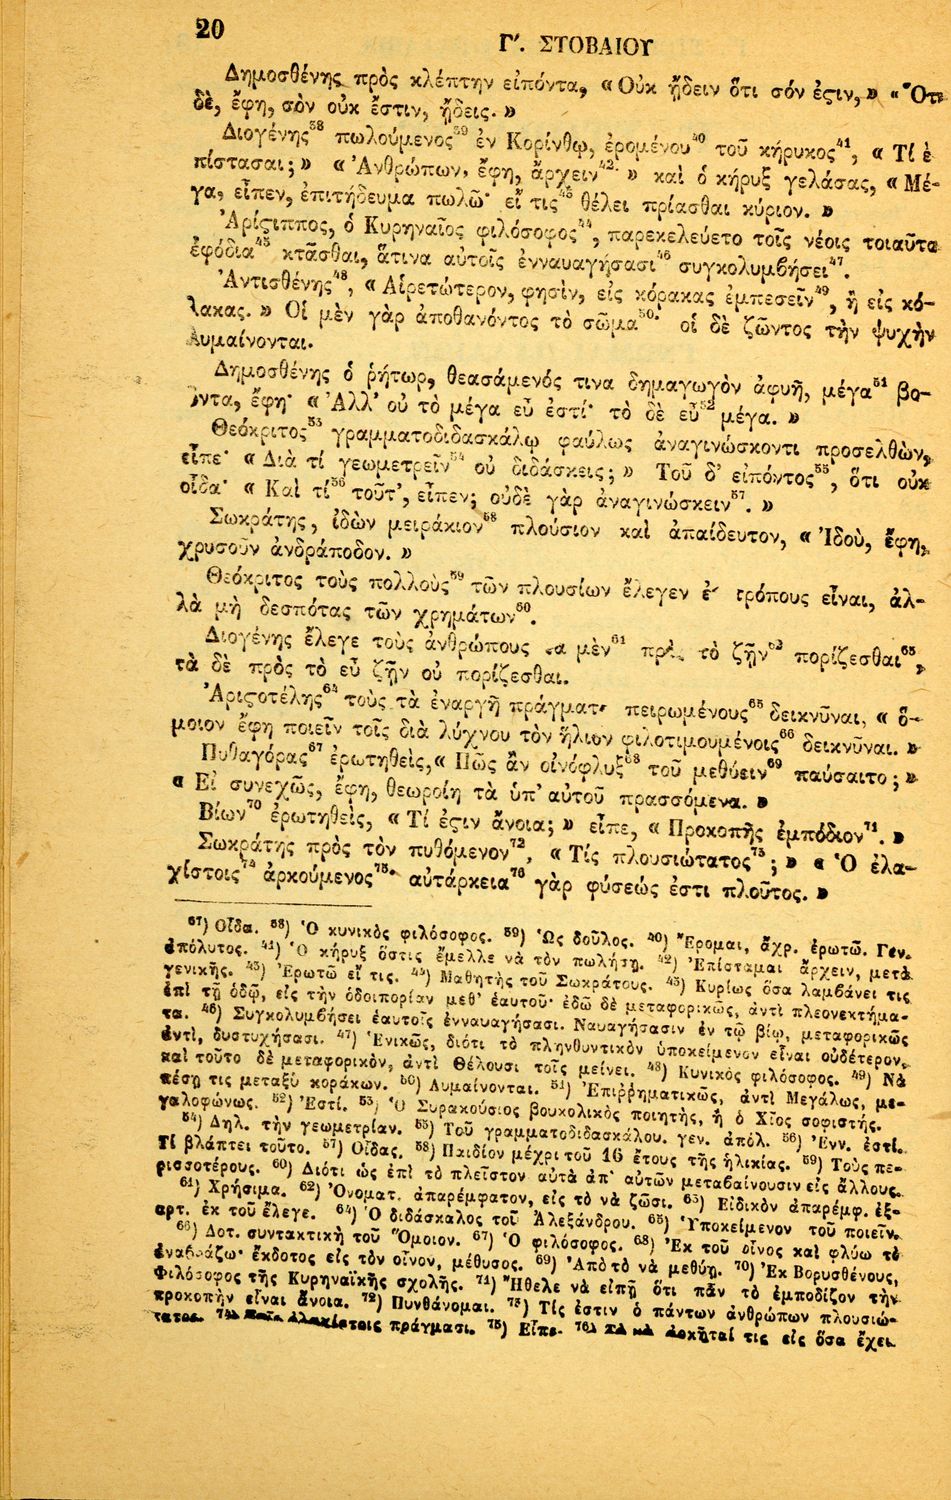 20
Γʹ. ΣΤΟΒΑΙΟΥ
Δημοσθένης πρὸς κλέπτην εἰπόντα, «Οὐκ ᾔδειν ὅτι σόν ἐϛιν,» «Ὅτι
δὲ, ἔφη, σὸν οὐκ ἔστιν, ᾔδεις.»
Διογένης³⁸ πωλούμενος³⁹ ἐν Κορίνθῳ, ἐρομένου⁴⁰ τοῦ κήρυκος⁴¹, «Τί ἐ
πίστασαι;» «Ἀνθρώπων, ἔφη, ἄρχειν⁴²·» καὶ ὁ κήρυξ γελάσας, «Μέ-
γα, εἶπεν, ἐπιτήδευμα πωλῶ· εἴ τις⁴³ θέλει πρίασθαι κύριον.»
Ἀρίϛιππος, ὁ Κυρηναῖος φιλόσοφος⁴⁴, παρεκελεύετο τοῖς νέοις τοιαῦτα
ἐφόδια⁴⁵ κτᾶσθαι, ἅτινα αὐτοῖς ἐνναυαγήσασι⁴⁶ συγκολυμβήσει⁴⁷.
Ἀντισθένης⁴⁸, «Αἱρετώτερον, φησὶν, εἰς κόρακας ἐμπεσεῖν⁴⁹, ἢ εἰς κό-
λακας.» Οἱ μὲν γὰρ ἀποθανόντος τὸ σῶμα⁵⁰· οἱ δὲ ζῶντος τὴν ψυχὴν
λυμαίνονται.
Δημοσθένης ὁ ῥήτωρ, θεασάμενός τινα δημαγωγὸν ἀφυῆ, μέγα⁵¹ βο-
ῶντα, ἔφη· «Ἀλλ' οὐ τὸ μέγα εὖ ἐστί· τὸ δὲ εὖ⁵² μέγα.»
Θεόκριτος⁵³ γραμματοδιδασκάλῳ φαύλως ἀναγινώσκοντι προσελθὼν,
εἶπε· «Διὰ τί γεωμετρεῖν⁵⁴ οὐ διδάσκεις;» Τοῦ δ' εἰπόντος⁵⁵, ὅτι οὐκ
οἶδα· «Καὶ τί⁵⁶ τοῦτ', εἶπεν; οὐδὲ γὰρ ἀναγινώσκειν⁵⁷.»
Σωκράτης, ἰδὼν μειράκιον⁵⁸ πλούσιον καὶ ἀπαίδευτον, «Ἰδοὺ, ἔφη,
χρυσοῦν ἀνδράποδον.»
Θεόκριτος τοὺς πολλοὺς⁵⁹ τῶν πλουσίων ἔλεγεν τρόπους εἶναι, ἀλ-
λὰ μὴ δεσπότας τῶν χρημάτων⁶⁰.
Διογένης ἔλεγε τοὺς ἀνθρώπους τὰ μὲν⁶¹ πρὸς τὸ ζῆν⁶² πορίζεσθαι⁶³,
τὰ δὲ πρὸς τὸ εὖ ζῆν οὐ πορίζεσθαι.
Ἀριϛοτέλης⁶⁴ τοὺς τὰ ἐναργῆ πράγματα πειρωμένους⁶⁵ δεικνῦναι, «ὅ-
μοιον ἔφη ποιεῖν τοῖς διὰ λύχνου τὸν ἥλιον φιλοτιμουμένοις⁶⁶ δεικνῦναι.»
Πυθαγόρας⁶⁷ ἐρωτηθεὶς,«Πῶς ἂν οἰνόφλυξ⁶⁸ τοῦ μεθύειν⁶⁹ παύσαιτο;»
«Εἰ συνεχῶς, ἔφη, θεωροίη τὰ ὑπ' αὐτοῦ πρασσόμενα.»
Βίων⁷⁰ ἐρωτηθεὶς, «Τί ἐϛιν ἄνοια;» εἶπε, «Προκοπῆς ἐμπόδιον⁷¹.»
Σωκράτης πρὸς τὸν πυθόμενον⁷², «Τίς πλουσιώτατος⁷³;» «Ὁ ἐλα-
χίστοις⁷⁴ ἀρκούμενος⁷⁵· αὐτάρκεια⁷⁶ γὰρ φύσεώς ἐστι πλοῦτος.»
³⁷) Οἶδα. ³⁸) Ὁ κυνικὸς φιλόσοφος. ³⁹) Ὡς δοῦλος. ⁴⁰) Ἔρομαι, ἄχρ. ἐρωτῶ. Γεν.
ἀπόλυτος. ⁴¹) Ὁ κήρυξ ὅστις ἔμελλε νὰ τὸν πωλήσῃ. ⁴²) Ἐπίσταμαι ἄρχειν, μετὰ
γενικῆς. ⁴³) Ἐρωτῶ εἴ τις. ⁴⁴) Μαθητὴς τοῦ Σωκράτους. ⁴⁵) Κυρίως ὅσα λαμβάνει τις
ἐπὶ τῇ ὁδῷ, εἰς τὴν ὁδοιπορίαν μεθ' ἑαυτοῦ· ἐδῶ δὲ μεταφορικῶς, ἀντὶ πλεονεκτήμα-
τα. ⁴⁶) Συγκολυμβήσει ἑαυτοῖς ἐνναυαγήσασι. Ναυαγήσασιν ἐν τῷ βίῳ, μεταφορικῶς
ἀντὶ, δυστυχήσασι. ⁴⁷) Ἑνικῶς, διότι τὸ πληθυντικὸν ὑποκείμενον εἶναι οὐδέτερον,
καὶ τοῦτο δὲ μεταφορικὸν, ἀντὶ Θέλουσι τοῖς μείνει. ⁴⁸) Κυνικὸς φιλόσοφος. ⁴⁹) Νὰ
πέσῃ τις μεταξὺ κοράκων. ⁵⁰) Λυμαίνονται. ⁵¹) Ἐπιῤῥηματικῶς, ἀντὶ Μεγάλως, με-
γαλοφώνως. ⁵²) Ἐστί. ⁵³) Ὁ Συρακούσιος βουκολικὸς ποιητὴς, ἢ ὁ Χῖος σοφιστής.
⁵⁴) Δηλ. τὴν γεωμετρίαν. ⁵⁵) Τοῦ γραμματοδιδασκάλου. γεν. ἀπόλ. ⁵⁶) Ἐνν. ἐστί.
Τί βλάπτει τοῦτο. ⁵⁷) Οἶδας. ⁵⁸) Παιδίον μέχρι τοῦ 16 ἔτους τῆς ἡλικίας. ⁵⁹) Τοὺς πε-
ρισσοτέρους. ⁶⁰) Διότι ὡς ἐπὶ τὸ πλεῖστον αὐτὰ ἀπ' αὐτῶν μεταβαίνουσιν εἰς ἄλλους.
⁶¹) Χρήσιμα. ⁶²) Ὀνοματ. ἀπαρέμφατον, εἰς τὸ νὰ ζῶσι. ⁶³) Εἰδικὸν ἀπαρέμφ. ἐξ-
αρτ. ἐκ τοῦ ἔλεγε. ⁶⁴) Ὁ διδάσκαλος τοῦ Ἀλεξάνδρου. ⁶⁵) Ὑποκείμενον τοῦ ποιεῖν.
⁶⁶) Δοτ. συντακτικὴ τοῦ Ὅμοιον. ⁶⁷) Ὁ φιλόσοφος. ⁶⁸) Ἐκ τοῦ οἶνος καὶ φλύω τὸ
ἀναβράζω· ἔκδοτος εἰς τὸν οἶνον, μέθυσος. ⁶⁹) Ἀπὸ τὸ νὰ μεθύῃ. ⁷⁰) Ἐκ Βορυσθένους,
Φιλόσοφος τῆς Κυρηναϊκῆς σχολῆς. ⁷¹) Ἤθελε νὰ εἰπῇ ὅτι πᾶν τὸ ἐμποδίζον τὴν
προκοπὴν εἶναι ἄνοια. ⁷²) Πυνθάνομαι. ⁷³) Τίς ἐστιν ὁ πάντων ἀνθρώπων πλουσιώ-
τατος. ⁷⁴) ἐλαχίστοις πράγμασι. ⁷⁵) Εἶπε. ⁷⁶) Τὸ νὰ ἀρκῆταί τις εἰς ὅσα ἔχει.